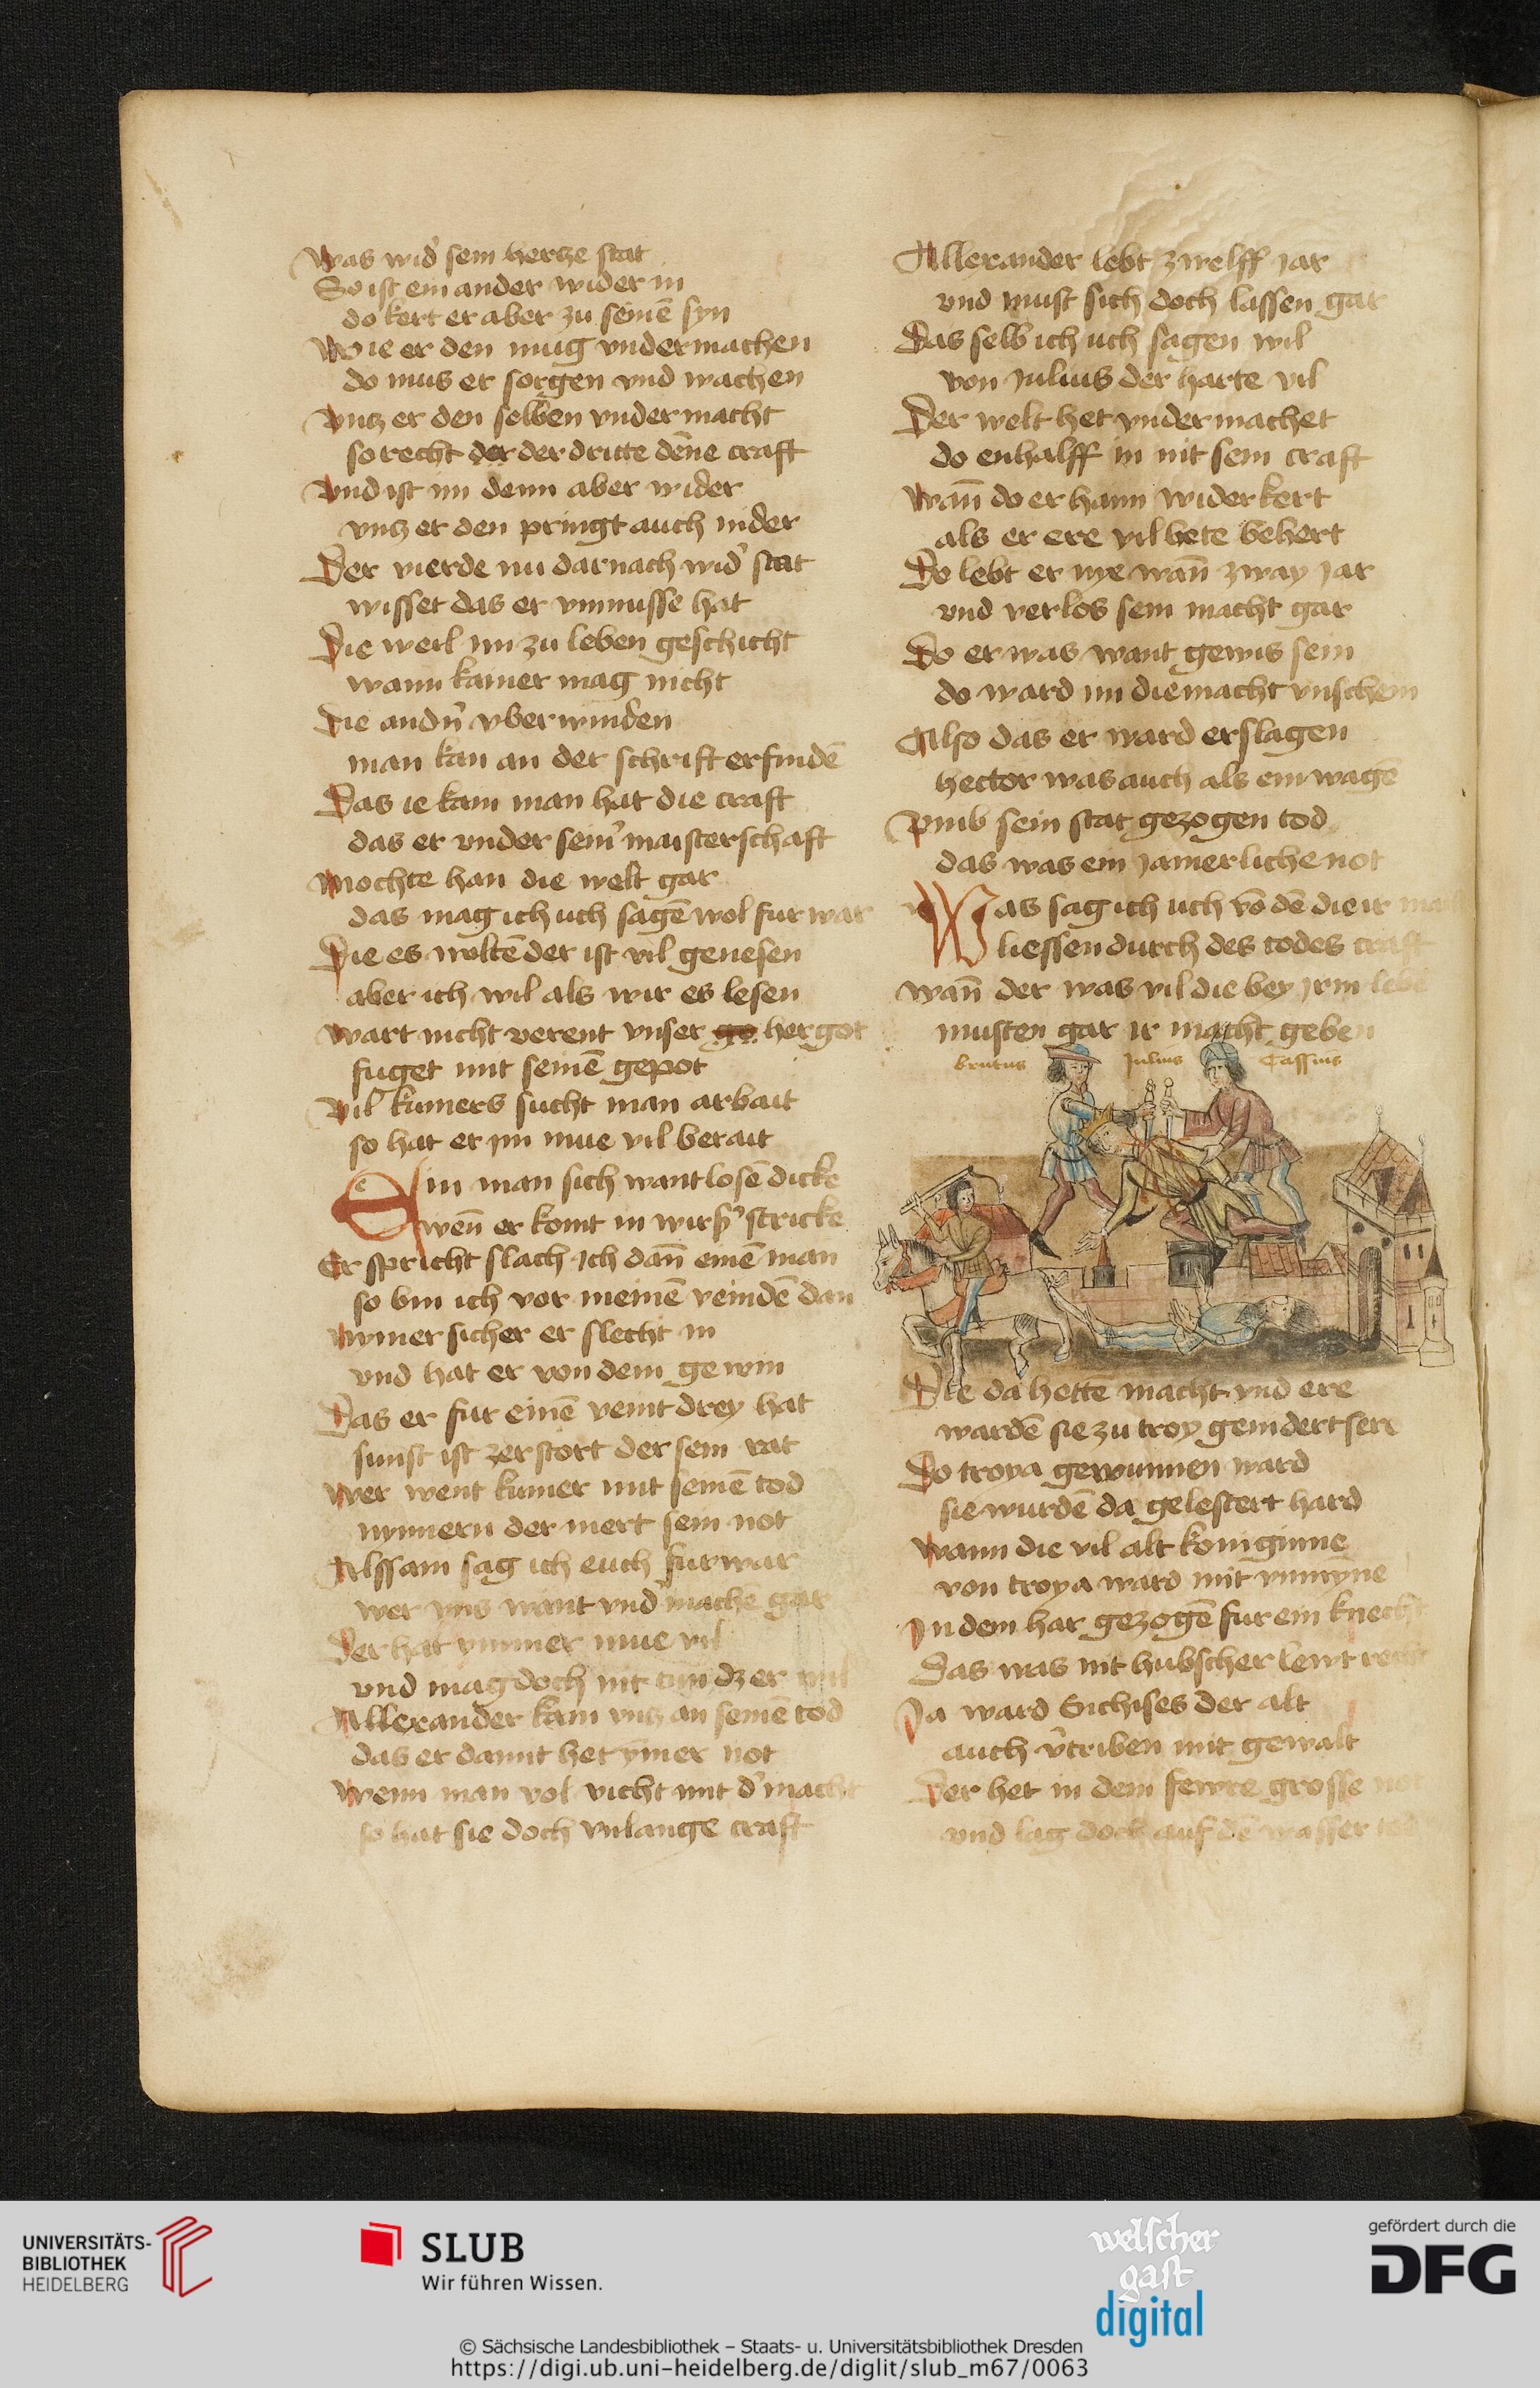 was wid᾽ sein hertze stat
So ist ein ander wider in
do kert er aber zu seinē syn
Wie er den mug vndermachen
do mus er sorgen vnd wachen
vntz er den selben vndermacht
so recht der der dritte dēne craft
vnd ist im denn aber wider
vntz er den pringt auch nider
Der vierde nu darnach wid᾽ stat
wisset das er vnmusse hat
Die weil im zu leben geschicht
wann kainer mag nicht
die andn᾽ vberwinden
man kan an der schrift erfindē
Das ie kain man hat die craft
das er vnder sein᾽ maisterschaft
Mochte han die welt gar
das mag ich uch sagē wol fur war
Die es woltē der ist vil genesen
aber ich wil als wir es lesen
wart nicht verent vnser go hergot
fuget mit seinē gepot
vil kumers sucht man arbait
so hat er im mue vil berait
Ein man sich want losē dicke
wen̄ er komt in wirs᾽ stricke
Er spricht slach ich dan̄ einē man
so bin ich vor meinē veindē dan
nymer sicher er slecht in
vnd hat er von dem gewin
Das er fur einē veint drey hat
sunst ist zerstort der sein rat
wer went kumer mit seinē tod
nymern der mert sein not
Alssam sag ich euch fur war
wer vns want vnd᾽ machē gar
Der hat ymmer mue vil
vnd mag doch nit tun dz er wil
Allexander kam vntz an seinē tod
das er damit het ymer not
wenn man vol vicht mit d᾽ macht
so hat sie doch vnlange craft
Allexander lebt zwelff jar
vnd must sich doch lassen gar
Das selb ich uch sagen wil
von julius der harte vil
Der welt het vndermachet
do enhalff in nit sein craft
wan̄ do er haim widerkert
als er ere vil hete behert
Do lebt er nye wan̄ zway jar
vnd verlos sein macht gar
Do er was want gewis sein
do ward im die macht vnschein
Also das er ward erslagen
hector was auch als ein wagē
vmb sein stat gezogen tod
das was ein jamerliche not
Was sag ich uch vō dē die ir
liessen durch des todes craft
wan̄ der was vil die bey jrm
musten gar ir macht geben
brutus Julius Cassius
Die da hette macht vnd ere
wardē sie zu troy genidert sere
Do troya gewunnen ward
sie wurdē da gelestert hard
wann die vil alt konigjnne
von troya ward mit vnmyne
In dem har gezogē fur ein knecht
Das was nit hubscher lewt recht
Ja ward Enchises der alt
auch v᾽triben mit gewalt
Der het in dem fewre grosse not
vnd lag doch auf dē wasser tod
UNIVERSITÄTS-
BIBLIOTHEK
HEIDELBERG
SLUB
Wir führen Wissen.
welscher
gast
digital
gefördert durch die
DFG
© Sächsische Landesbibliothek – Staats- u. Universitätsbibliothek Dresden
https://digi.ub.uni-heidelberg.de/diglit/slub_m67/0063